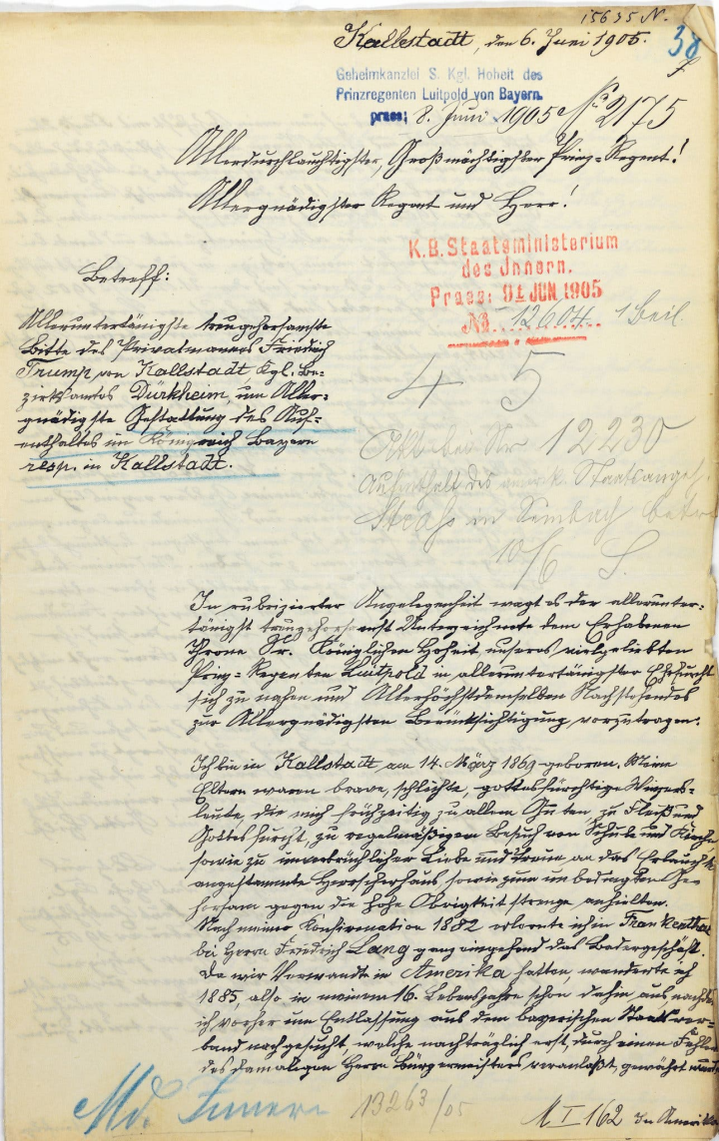 15635 N.
Kallstadt, den 6. Juni 1905.
38
Geheimkanzlei S. Kgl. Hoheit des
Prinzregenten Luitpold von Bayern.
praes: 8. Juni 1905 No 2175
Allerdurchlauchtigster, Großmächtigster Prinz-Regent!
Allergnädigster Regent und Herr!
K.B. Staatsministerium
des Innern.
Praes: 9. JUN. 1905
No. 12604. 1 Beil.
Betreff:
Alleruntertänigste treugehorsamste
Bitte des Privatmannes Friedrich
Trump, von Kallstadt Kgl. Be-
zirksamtes Dürkheim, um Aller-
gnädigste Gestattung des Auf-
enthaltes im Königreich Bayern
resp. in Kallstadt.
4 5
Nr. 12230
Aufenthalt des amerik. Staatsangeh.
in Sembach betr.
10/6 S.
In rubrizierter Angelegenheit wagt es der allerunter-
tänigst treugehorsamst Unterzeichnete dem Erhabenen
Throne Sr. Königlichen Hoheit unseres vielgeliebten
Prinz-Regenten Luitpold in alleruntertänigster Ehrfurcht
sich zu nahen und Allerhöchstdemselben Nachstehendes
zur Allergnädigsten Berücksichtigung vorzutragen.
Ich bin in Kallstadt am 14. März 1869 geboren. Meine
Eltern waren brave, schlichte, gottesfürchtige Winzers-
leute, die mich frühzeitig zu allem Guten, zu Fleiß und
Gottesfurcht, zu regelmäßigem Besuch von Schule und Kirche,
sowie zu unverbrüchlicher Liebe und Treue an das
angestammte Herrscherhaus sowie zum unbedingten Ge-
horsam gegen die hohe Obrigkeit strenge anhielten.
Nach meiner Konfirmation 1882 erlernte ich in Frankenthal
bei Herrn Friedrich Lang ganz eingehend das Badergeschäft.
Da wir Verwandte in Amerika hatten, wanderte ich
1885, also in meinem 16. Lebensjahre schon dahin aus, nachdem
ich vorher um Entlassung aus dem bayerischen Staatsver-
band nachgesucht, welche nachträglich erst, durch einen Fehler
des damaligen Herrn Bürgermeisters veranlaßt, gewährt wurde.
Md. Innern 13263/05
M I 162 In Amerika